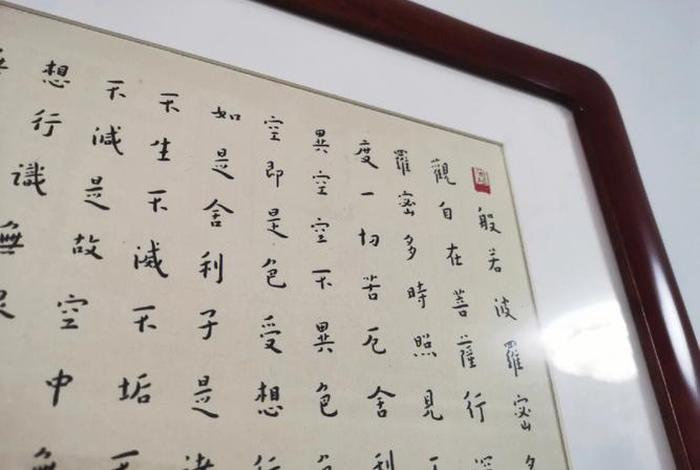 般若波羅密多
觀自在菩薩行深
羅密多時照見五
度一切苦厄舍利
異空空不異色色
空即是色受想行
如是舍利子是諸
不生不滅不垢不
不減是故空中無
想行識無